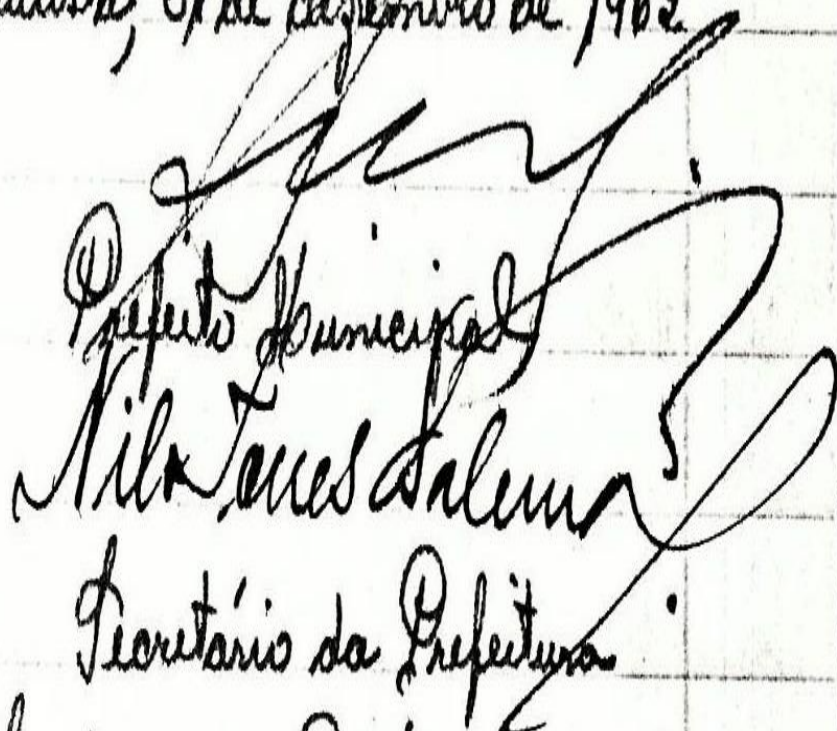 de dezembro de 1962
Prefeito Municipal
Nilo Torres Salema
Secretário da Prefeitura